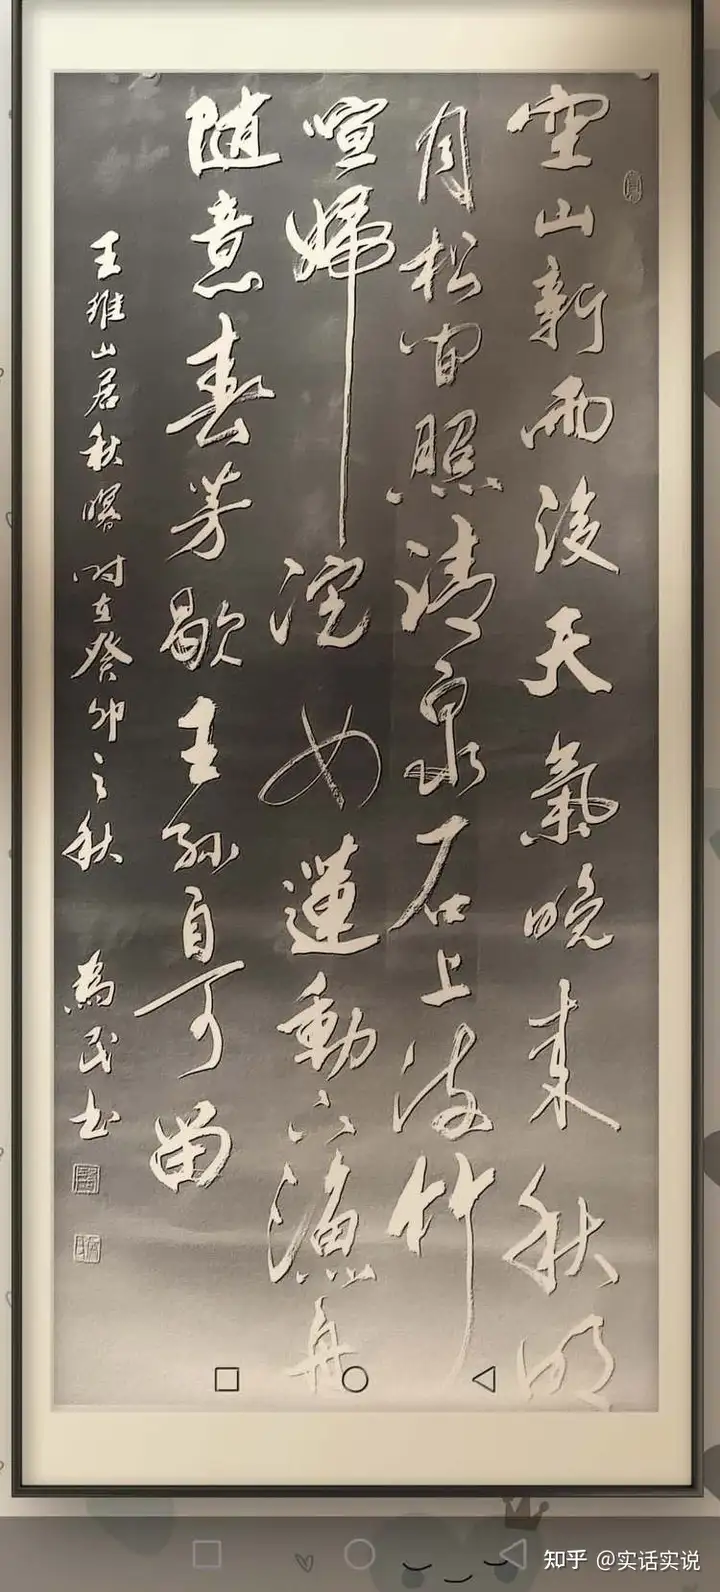 空山新雨後天氣晚来秋明
月松间照清泉石上流竹
喧歸浣女蓮動下漁舟
随意春芳歇王孫自可留
王維山居秋暝 时在癸卯之秋 為民书
知乎 @实话实说